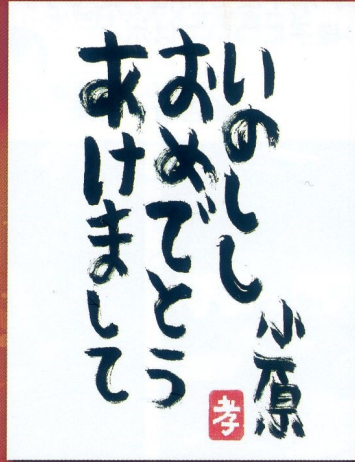 あけまして
おめでとう
いのしし
小原
孝